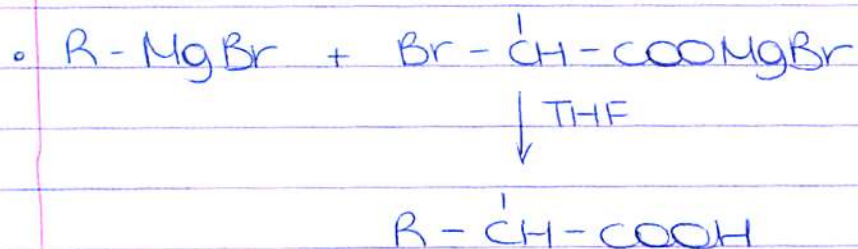 • R - MgBr + Br - CH - COOMgBr
↓ THF
R - CH - COOH